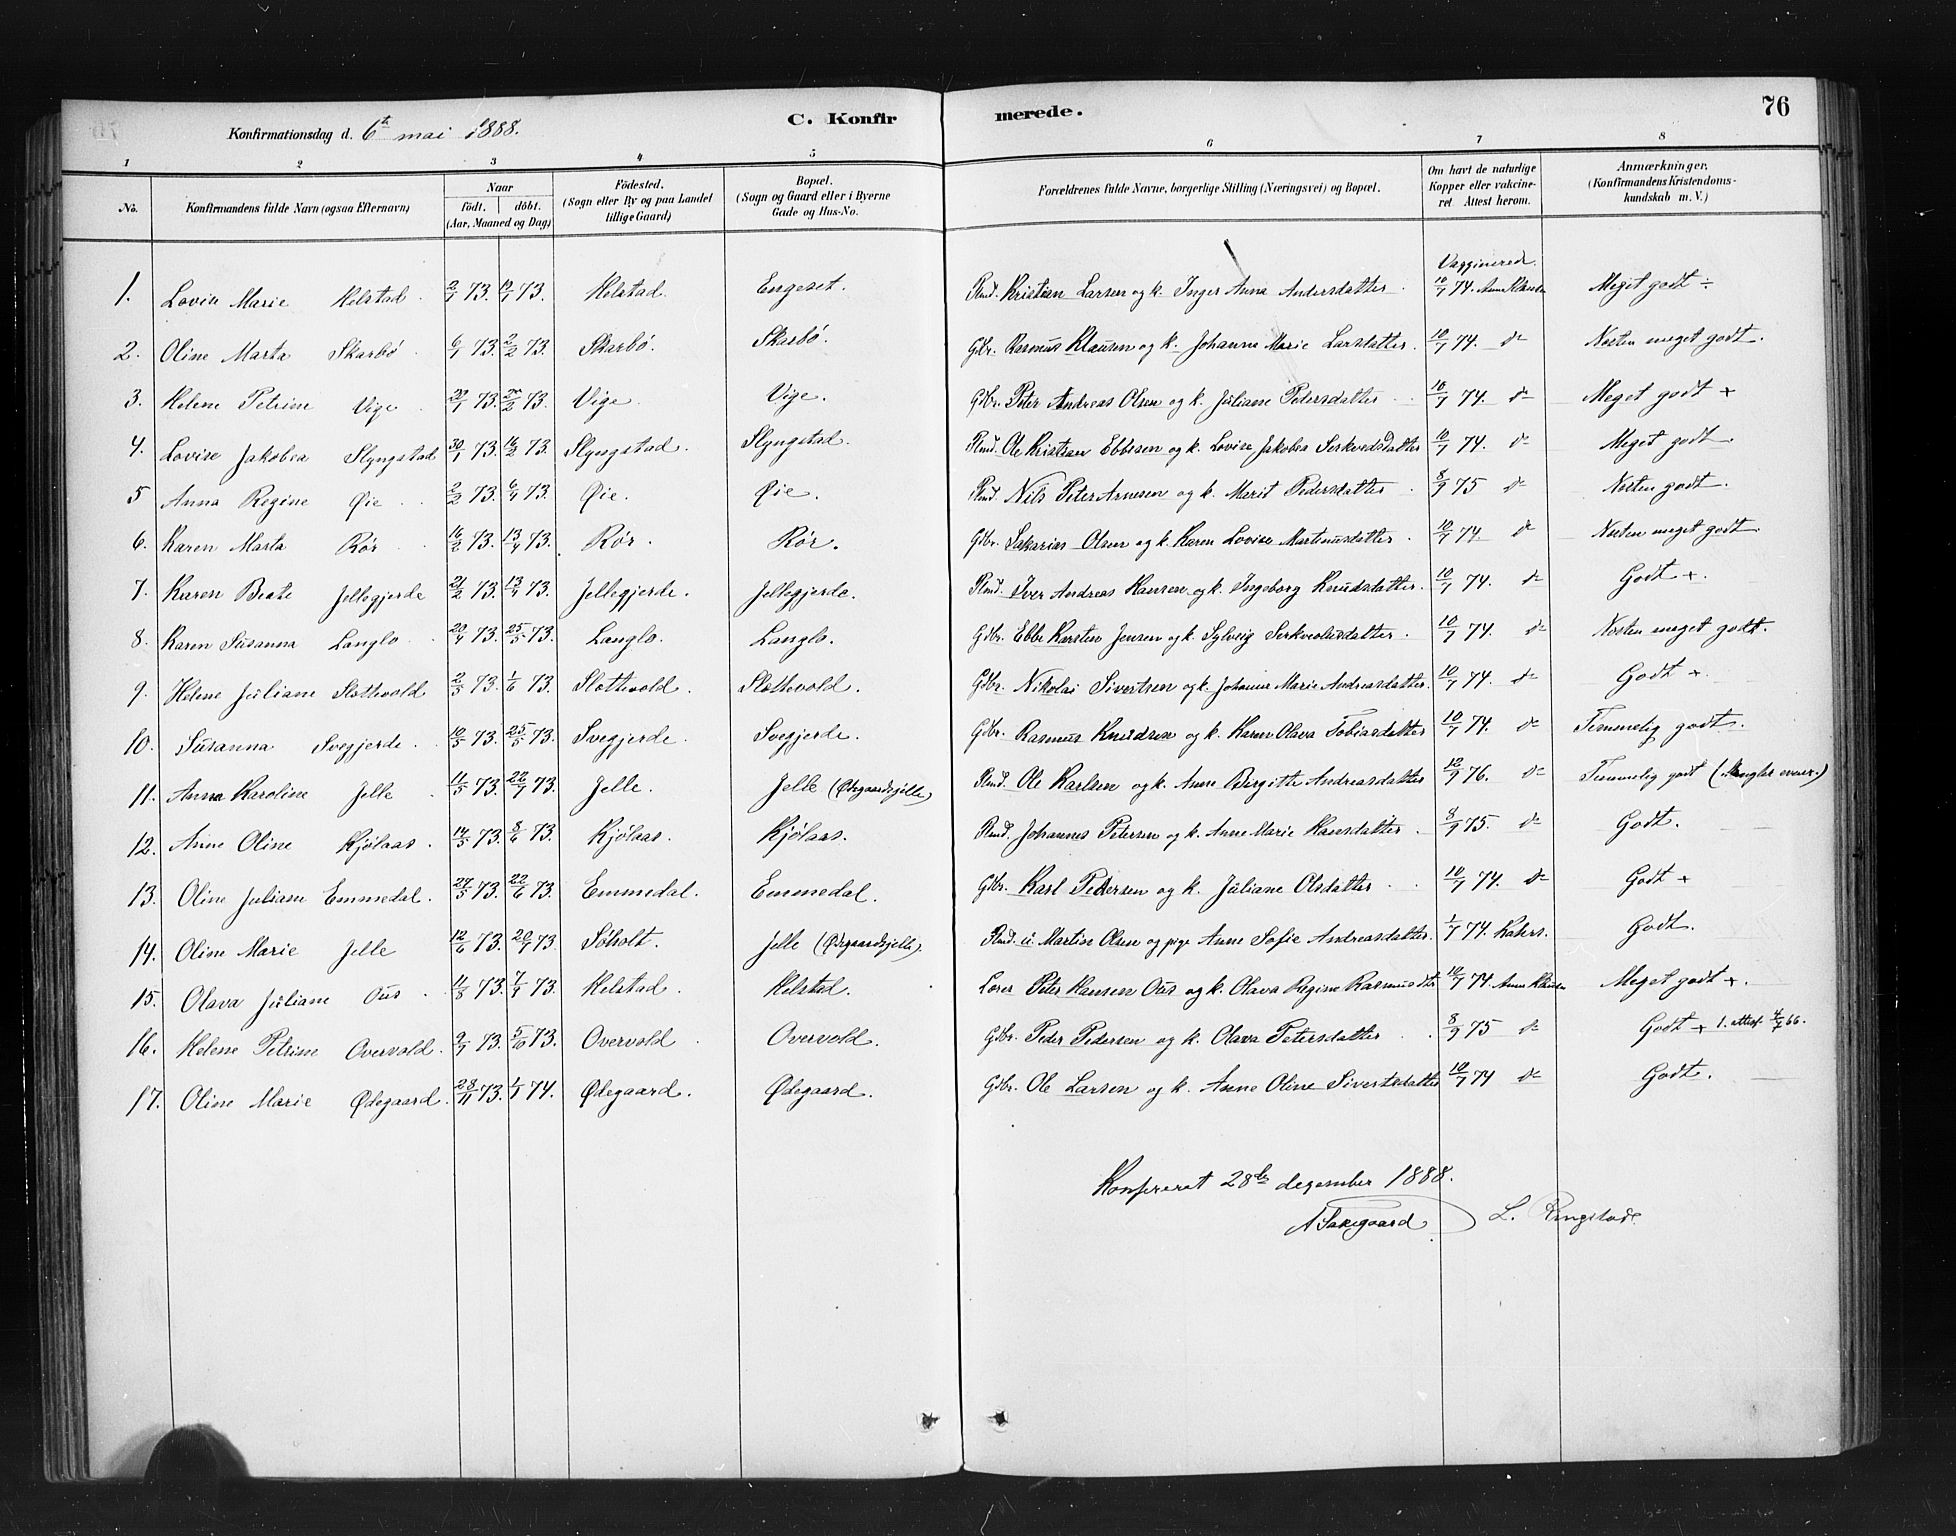 76
Konfirmationsdag d. 6te mai 1888.
C. Konfirmerede.
1 2 3 4 5 6 7 8
No. Konfirmandens fulde Navn (ogsaa Efternavn) Naar födt. döbt. (Aar, Maaned og Dag) Födested. (Sogn eller By og paa Landet tillige Gaard) Bopæl. (Sogn og Gaard eller i Byerne Gade og Hus-No. Forældrenes fulde Navne, borgerlige Stilling (Næringsvei) og Bopæl. Om havt de naturlige Kopper eller vakcineret. Attest herom. Anmærkninger. (Konfirmandens Kristendomskundskab m. V.)
Vagginered.
1. Lovise Marie Helstad. 2/1 73. 19/1 73. Helstad. Engeset. Plmd. Kristian Larsen og k. Inger Anna Andersdatter. 10/7 74. Anne Klausen Meget godt ÷
2. Oline Marta Skarbö 6/1 73. 2/2 73. Skarbö. Skarbö. Gbr. Rasmus Klausen og k. Johanne Marie Larsdatter. 10/7 74. do Nesten meget godt.
3. Helene Petrine Vige 20/1 73. /2 73. Vige Vige. Gbr. Peter Andreas Olsen og k. Juliane Pedersdatter 10/7 74. do Meget godt +
4. Lovise Jakobea Slyngstad 30/1 73. 16/2 73. Slyngstad. Slyngstad. Plmd. Ole Kristian Ebbesen og k. Lovise Jakobea Serkvedsdatter 10/7 74. do Meget godt.
5 Anna Regine Øie 2/2 73. 6/4 73. Øie. Øie. Plmd. Nils Peter Arnesen og k. Marit Pedersdatter 8/9 75 do Nesten godt.
6. Karen Marta Rör 16/2 73. 13/4 73. Rör. Rör. Gbr. Sakarias Olsen og k. Karen Lovise Martinusdatter 10/7 74. do Nesten meget godt
7. Karen Beate Jellegjerde 21/2 73. 13/4 73. Jellegjerde. Jellegjerde. Plmd. Iver Andreas Hansen og k. Ingeborg Knudsdatter. 10/7 74. do Godt +.
8. Karen Susanna Langlo 20/4 73. 25/5 73. Langlo. Langlo. Gbr. Ebbe Karsten Jensen og k. Sylveig Serkvedsdatter. 10/7 74. do Nesten meget godt.
9. Helene Juliane Slottvold 2/5 73. 1/6 73. Slottvold. Slottvold. Gbr. Nikolai Sivertsen og k. Johanne Marie Andreasdatter. 10/7 74. do Godt +.
10. Susanna Svegjerde. 10/5 73. 25/5 73. Svegjerde. Svegjerde. Gbr. Rasmus Knudsen og k. Karen Olava Tobiasdatter 10/7 74. do Temmelig godt.
11. Anna Karoline Jelle 11/5 73. 22/7 73. Jelle. Jelle (Ødegaardsjelle) Plmd. Ole Karlsen og k. Anne Birgitte Andreasdatter 12/9 76. do Temmelig godt (Mangler evner.)
12. Anne Oline Kjölaas. 14/5 73. 8/6 73. Kjölaas. Kjölaas. Plmd. Johannes Petersen og k. Anne Marie Hansdatter. 8/9 75. do Godt.
13. Oline Juliane Emmedal. 27/5 73. 22/6 73. Emmedal. Emmedal. Gbr. Karl Pedersen og k. Juliane Olsdatter 10/7 74. do Godt +
14. Oline Marie Jelle 12/6 73. 20/7 73. Söholt. Jelle (Ødegaardsjelle). Plmd. u. Martin Olsen og pige Anne Sofie Andreasdatter. 1/7 74. Kahrs. Godt.
15. Olava Juliane Ous 11/8 73. 7/9 73. Helstad. Helstad. Lærer Peter Hansen Ous og k. Olava Regine Rasmusdtr 10/7 74. Anne Klausen Meget godt +.
16. Helene Petrine Overvold. 9/9 73. 5/10 73. Overvold Overvold. Gbr. Peder Pedersen og k. Olava Petersdatter 8/9 75 do Godt + 1. attest 66.
17. Oline Marie Ødegaard. 28/11 73. 1/1 74. Ødegaard. Ødegaard. Gbr. Ole Larsen og k. Anne Oline Sivertsdatter 10/7 74 do Godt.
Konfereret 28de dezember 1888.
L. Ringstad.